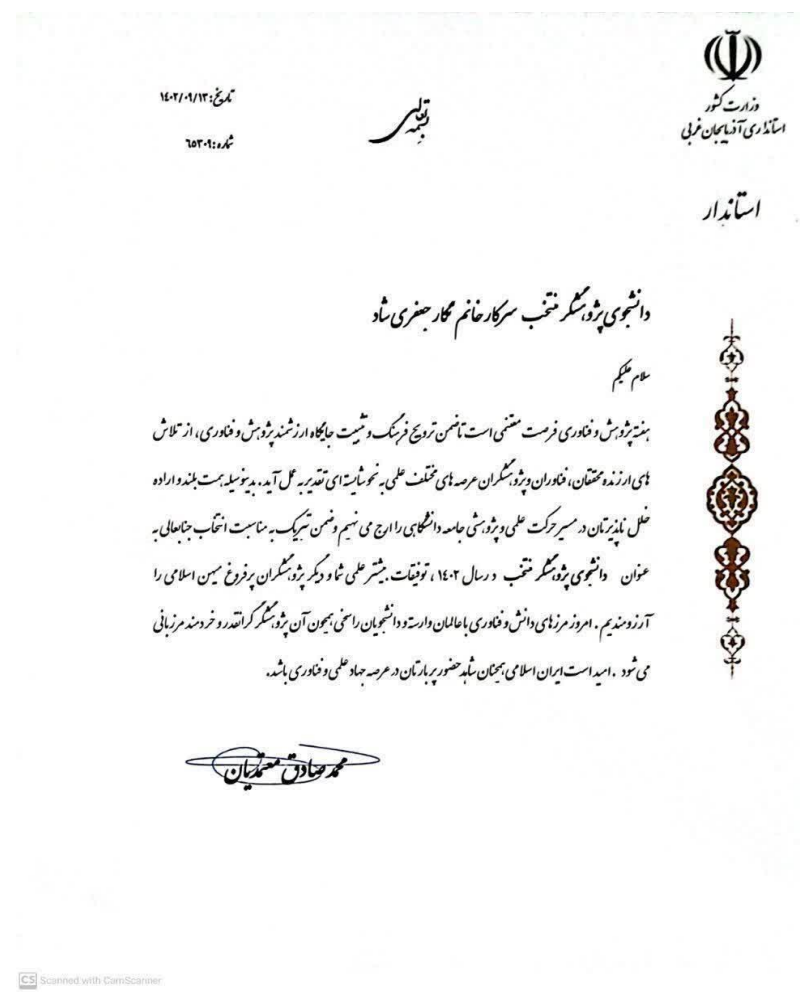 وزارت کشور
استانداری آذربایجان غربی
استاندار
بسمه تعالی
تاریخ: ۱۴۰۲/۰۹/۱۳
شماره: ۶۵۳۰۹
دانشجوی پژوهشگر منتخب سرکار خانم نگار جعفری شاد
سلام علیکم
هفته پژوهش و فناوری فرصت مغتنمی است تا ضمن ترویج فرهنگ و تثبیت جایگاه ارزشمند پژوهش و فناوری، از تلاش
های ارزنده محققان، فناوران و پژوهشگران عرصه های مختلف علمی به نحو شایسته ای تقدیر به عمل آید. بدینوسیله همت بلند و اراده
خلل ناپذیرتان در مسیر حرکت علمی و پژوهشی جامعه دانشگاهی را ارج می نهیم و ضمن تبریک به مناسبت انتخاب جنابعالی به
عنوان دانشجوی پژوهشگر منتخب در سال ۱۴۰۲، توفیقات بیشتر علمی شما و دیگر پژوهشگران پرفروغ میهن اسلامی را
آرزومندیم. امروز مرزهای دانش و فناوری با عالمان وارسته و دانشجویان راسخی همچون آن پژوهشگر گرانقدر و خردمند مرزبانی
می شود. امید است ایران اسلامی همچنان شاهد حضور پربارتان در عرصه جهاد علمی و فناوری باشد.
محمد صادق معتمدیان
CS Scanned with CamScanner